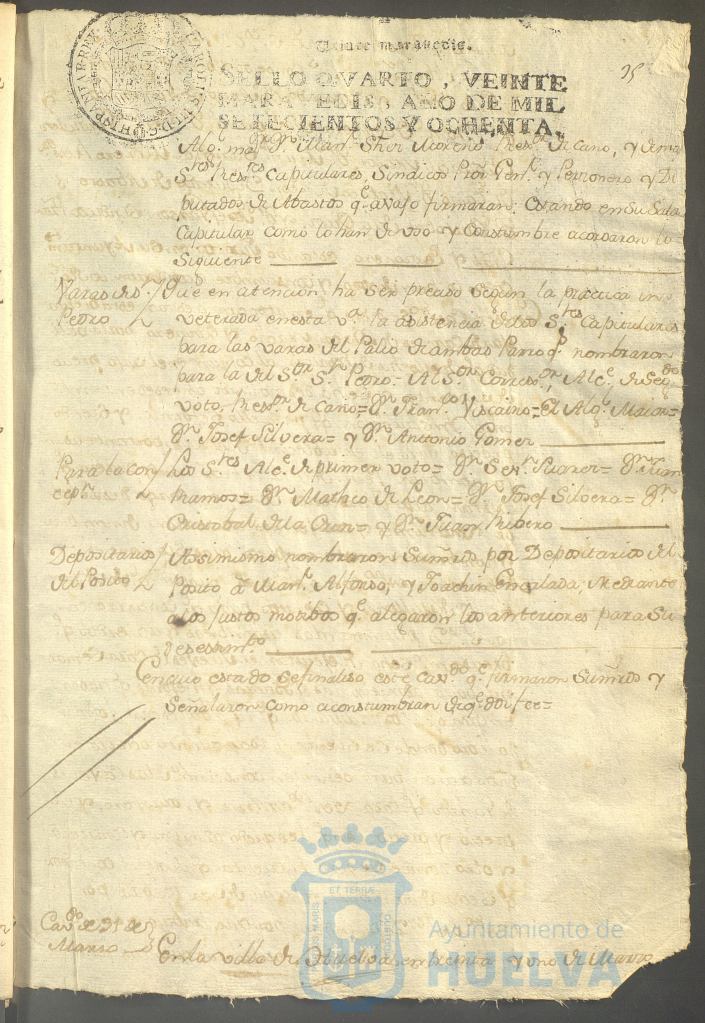 CAROLUS III D G HISPANIAR REX
Veinte maravedis.
95
SELLO QVARTO, VEINTE
MARAVEDIS, AÑO DE MIL
SETECIENTOS Y OCHENTA.
Alg.l ma.or D.n Man.l Moreno Res.or de Caño, y demas
S.res Res.res Capitulares, Sindicos Pror Gen.l y Personero y Di
putados de Abastos q.e avajo firmaran: Estando en Su Sala
Capitular como lo han de uso y Constumbre acordaron lo
Siguiente
Varas de S.n Pedro
Que en atencion ha ser preciso Segun la practica in
veterada en esta v.a la asistencia de los S.res Capitulares
para las varas del Palio de ambas Parroq.s nombraron
para la del S.or S.n Pedro= Al S.or Corres.or Alc.e de Seg.do
voto, Res.or de caño= D.n Fran.co Viscaino= El Alg.l Maior=
D.n Josef Silvera= y D.n Anttonio Gomez
Para la con/
cep.n
Los S.res Alc.e de primer voto= D.n Suarez= D.n Juan
Ramos= D.n Matheo de Leon= D.n Josef Silvera= D.n
Cristobal de la Cruz= y D.n Juan Ribero
Depositarios/
del Posito
Assimismo nombraron Sus m.rds por Depositarios del
Posito â Man.l Alfonso, y Joachin Encalada, Mediante
a los Justos motibos q.e alegaron los anteriores para Su
Cen cuio estado se finaliso este Cav.do q.e firmaron Sus m.rds y
Señalaron como aconstumbran de q.e doi fee=
Cav.do de 31 de
Marzo
En la villa de Huelva en treinta y uno de Marzo
PORTUS MARIS ET TERRAE CUSTODIA
Ayuntamiento de
HUELVA